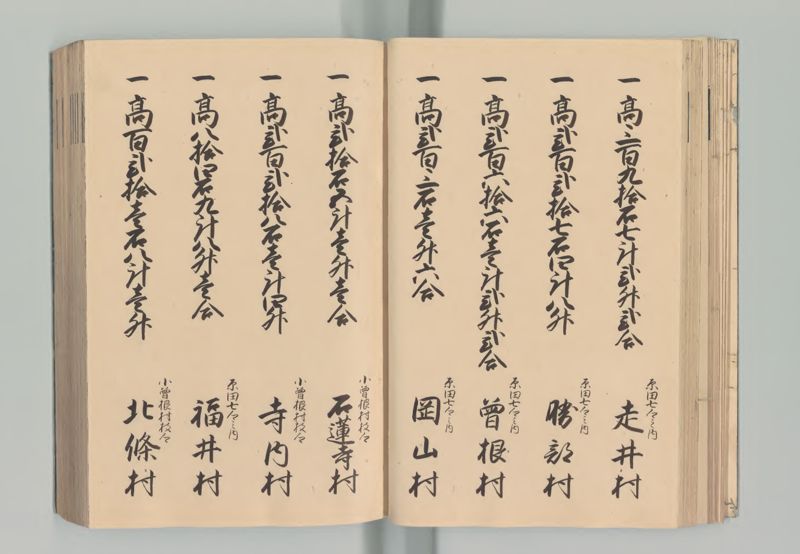 一 高三百九拾石七斗弐升弐合
原田七ケ之内
走井村
一 高弐百弐拾七石四斗八升
原田七ケ之内
勝部村
一 高弐百六拾六石壱斗弐升弐合
原田七ケ之内
曽根村
一 高弐百三石壱升六合
原田七ケ之内
岡山村
一 高弐拾石五斗壱升壱合
小曽根村枝ケ
石蓮寺村
一 高弐百弐拾八石壱斗四升
小曽根村枝ケ
寺内村
一 高八拾四石九斗八升壱合
原田七ケ之内
福井村
一 高百弐拾壱石八斗壱升
小曽根村枝ケ
北條村